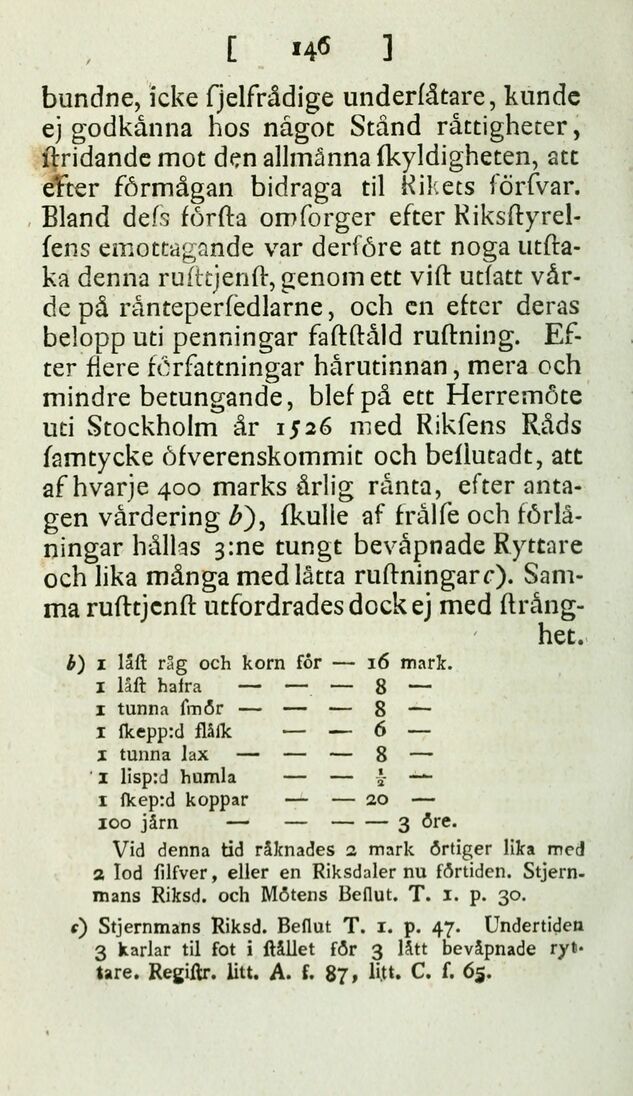 [ 146 ]
bundne, icke ſjelfrådige underſåtare, kunde
ej godkånna hos något Stånd råttigheter,
ſtridande mot den allmånna ſkyldigheten, att
efter förmågan bidraga til Rikets förſvar.
Bland deſs förſta omſorger efter Riksſtyrel-
ſens emottagande var derföre att noga utſta-
ka denna ruſttjenſt, genom ett viſt utſatt vår-
de på rånteperſedlarne, och en efter deras
belopp uti penningar faſtſtåld ruſtning. Ef-
ter flere författningar hårutinnan, mera och
mindre betungande, blef på ett Herremöte
uti Stockholm år 1526 med Rikſens Råds
ſamtycke öfverenskommit och beſlutadt, att
af hvarje 400 marks årlig rånta, efter anta-
gen vårdering b), ſkulle af frålſe och förlå-
ningar hållas 3:ne tungt bevåpnade Ryttare
och lika många med låtta ruſtningar c). Sam-
ma ruſttjenſt utfordrades dock ej med ſtrång-
het.
b) 1 låſt råg och korn för — 16 mark.
1 låſt hafra — — — 8 —
1 tunna ſmör — — — 8 —
1 ſkepp:d flåſk — — 6 —
1 tunna lax — — — 8 —
1 lisp:d humla — — ½ —
1 ſkep:d koppar — — 20 —
100 jårn — — — — 3 öre.
Vid denna tid råknades 2 mark örtiger lika med
2 lod ſilfver, eller en Riksdaler nu förtiden. Stjern-
mans Riksd. och Mötens Beſlut. T. 1. p. 30.
c) Stjernmans Riksd. Beſlut T. 1. p. 47. Undertiden
3 karlar til fot i ſtållet för 3 lått bevåpnade ryt-
tare. Regiſtr. litt. A. f. 87, litt. C. f. 65.